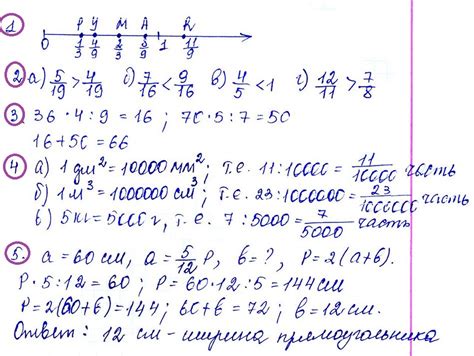 1 P У M A R
0 1/3 4/9 2/3 8/9 1 11/9
2 а) 5/19 > 4/19 б) 7/16 < 9/16 в) 4/5 < 1 г) 12/11 > 7/8
3 36 · 4 : 9 = 16 ; 70 · 5 : 7 = 50
16 + 50 = 66
4 а) 1 дм² = 10000 мм² ; т.е. 11 : 10000 = 11/10000 часть
б) 1 м³ = 1000000 см³ ; т.е. 23 : 1000000 = 23/1000000 часть
в) 5 кг = 5000 г, т.е. 7 : 5000 = 7/5000 часть
5. a = 60 см, a = 5/12 P, в = ?, P = 2(a+в).
P · 5 : 12 = 60 ; P = 60 · 12 : 5 = 144 см
P = 2(60+в) = 144 ; 60 + в = 72 ; в = 12 см.
Ответ: 12 см - ширина прямоугольника